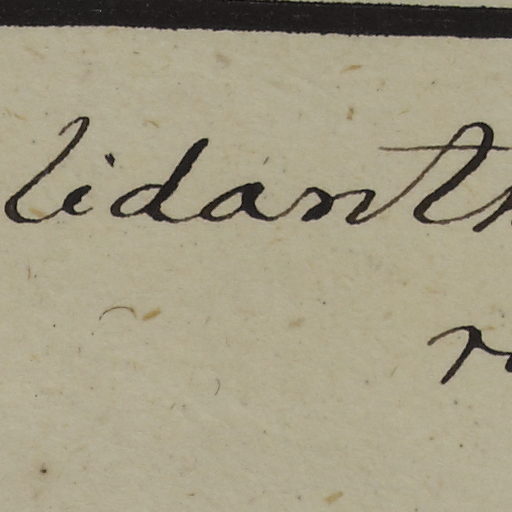 lidanth
r